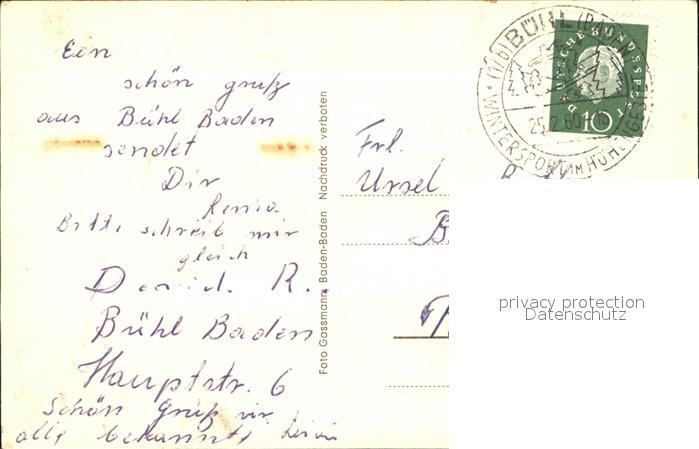 Ein
schön gruß
aus Bühl Baden
sendet
Dir
Bitte schreib mir
gleich
R.
Bühl Baden
Hauptstr. 6
Schön gruß
alle bekannte
Foto Gassmann, Baden-Baden Nachdruck verboten
Frl.
Ursel
(17b) BÜHL (BADEN)
25.2.60
WINTERSPORT IM HÖHENGEBIET
DEUTSCHE BUNDESPOST
10
privacy protection
Datenschutz